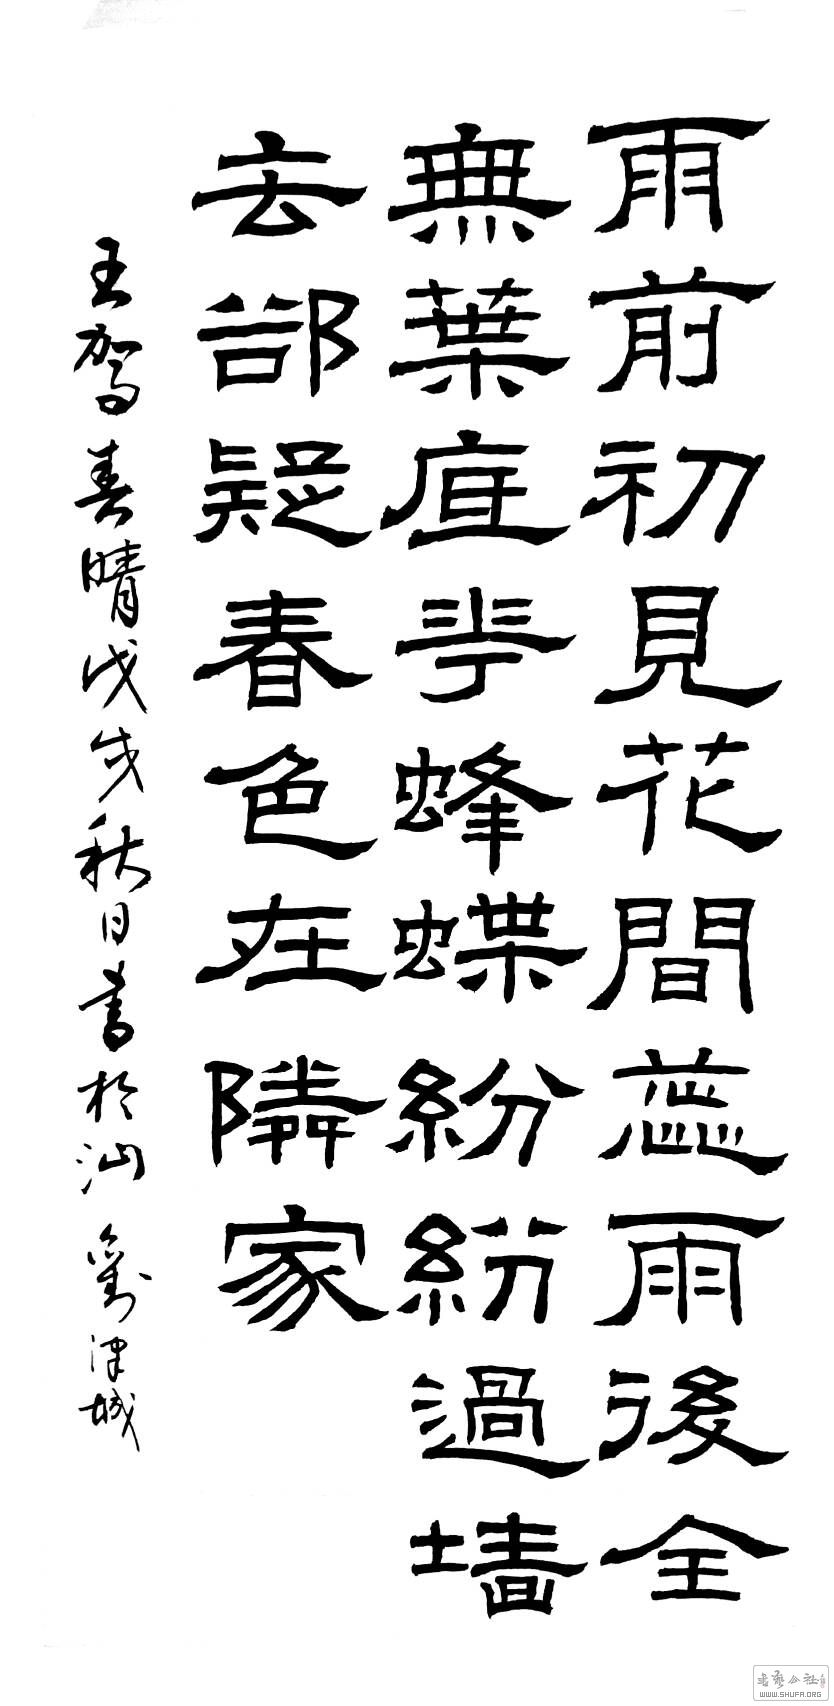 雨前初見花間蕊雨後全
無葉底華蜂蝶紛紛過墙
去郤疑春色在隣家
王駕春晴戊戌秋日書於汕 劉津城
書藝公社
WWW.SHUFA.ORG